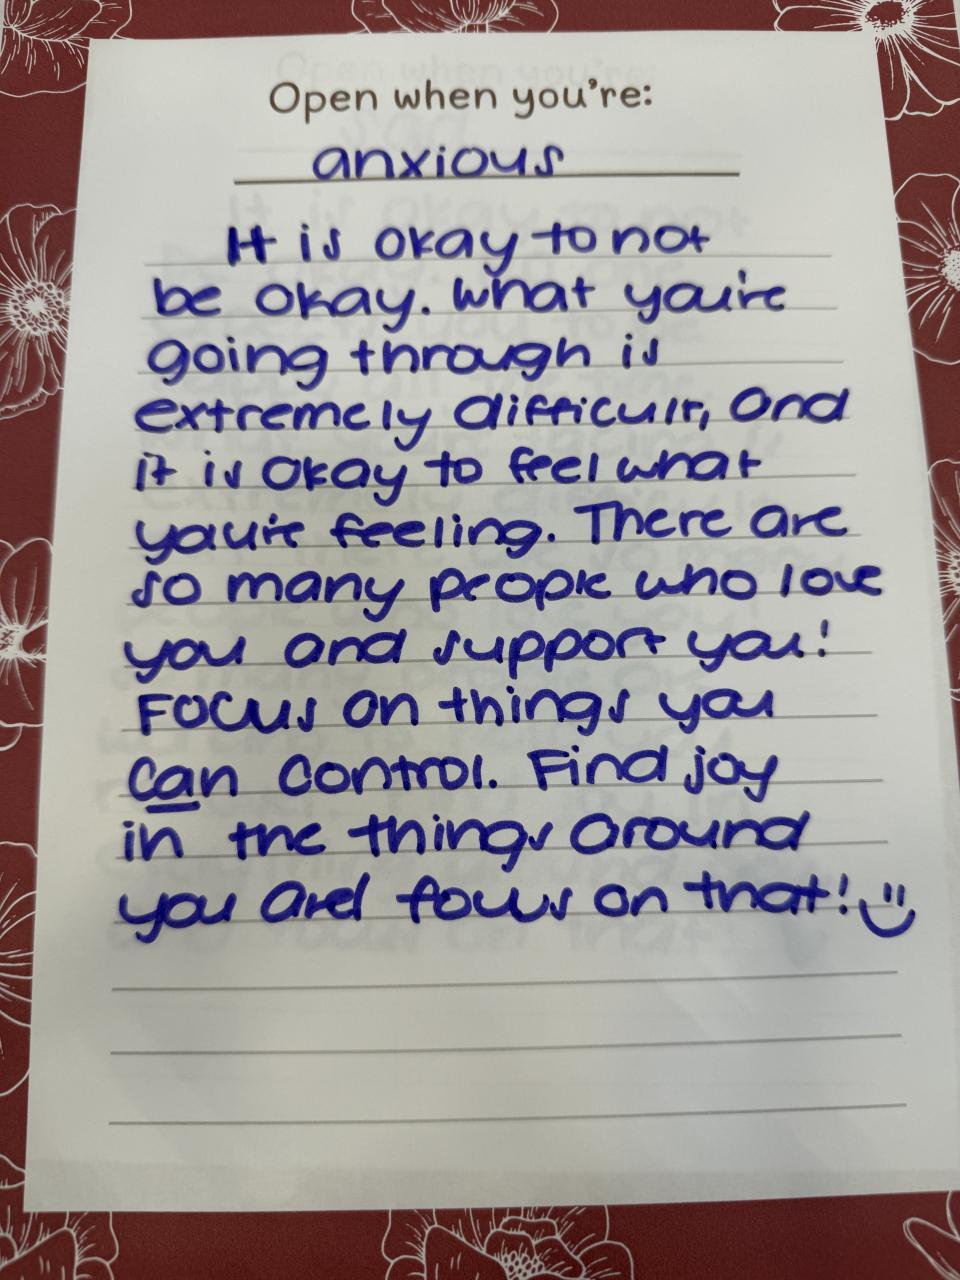 Open when you're:
anxious
It is okay to not
be okay. What you're
going through is
extremely difficult, and
it is okay to feel what
you're feeling. There are
so many people who love
you and support you!
Focus on things you
can control. Find joy
in the things around
you and focus on that! :)